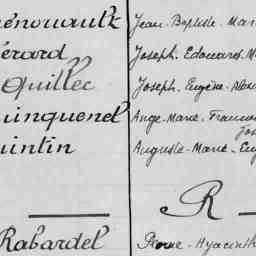 énouault Jean-Baptiste-Mar
érard Joseph-Edouard-M
Quillec Joseph-Eugène-Alex
uinquenel Ange-Marie-Francois
Jos
uintin Auguste-Marie-Eug
R
Rabardel Pierre-Hyacinth